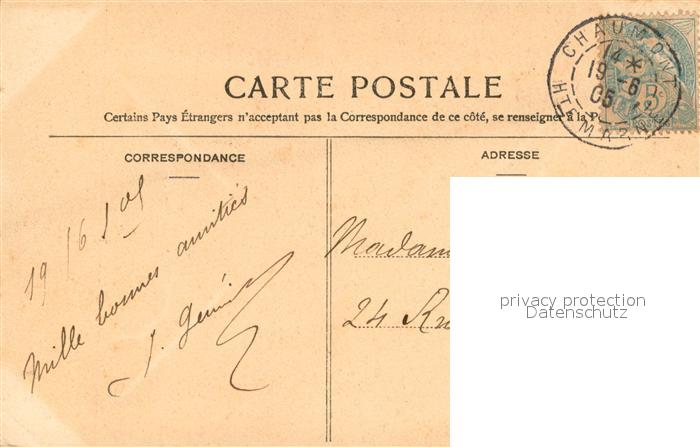 CHAUMONT
14 *
19 -6
05
HTE MARNE
CARTE POSTALE
Certains Pays Étrangers n'acceptent pas la Correspondance de ce côté, se renseigner à la
CORRESPONDANCE
ADRESSE
19/6/05
Mille bonnes amitiés
J.
Madam
24 Ru
privacy protection
Datenschutz